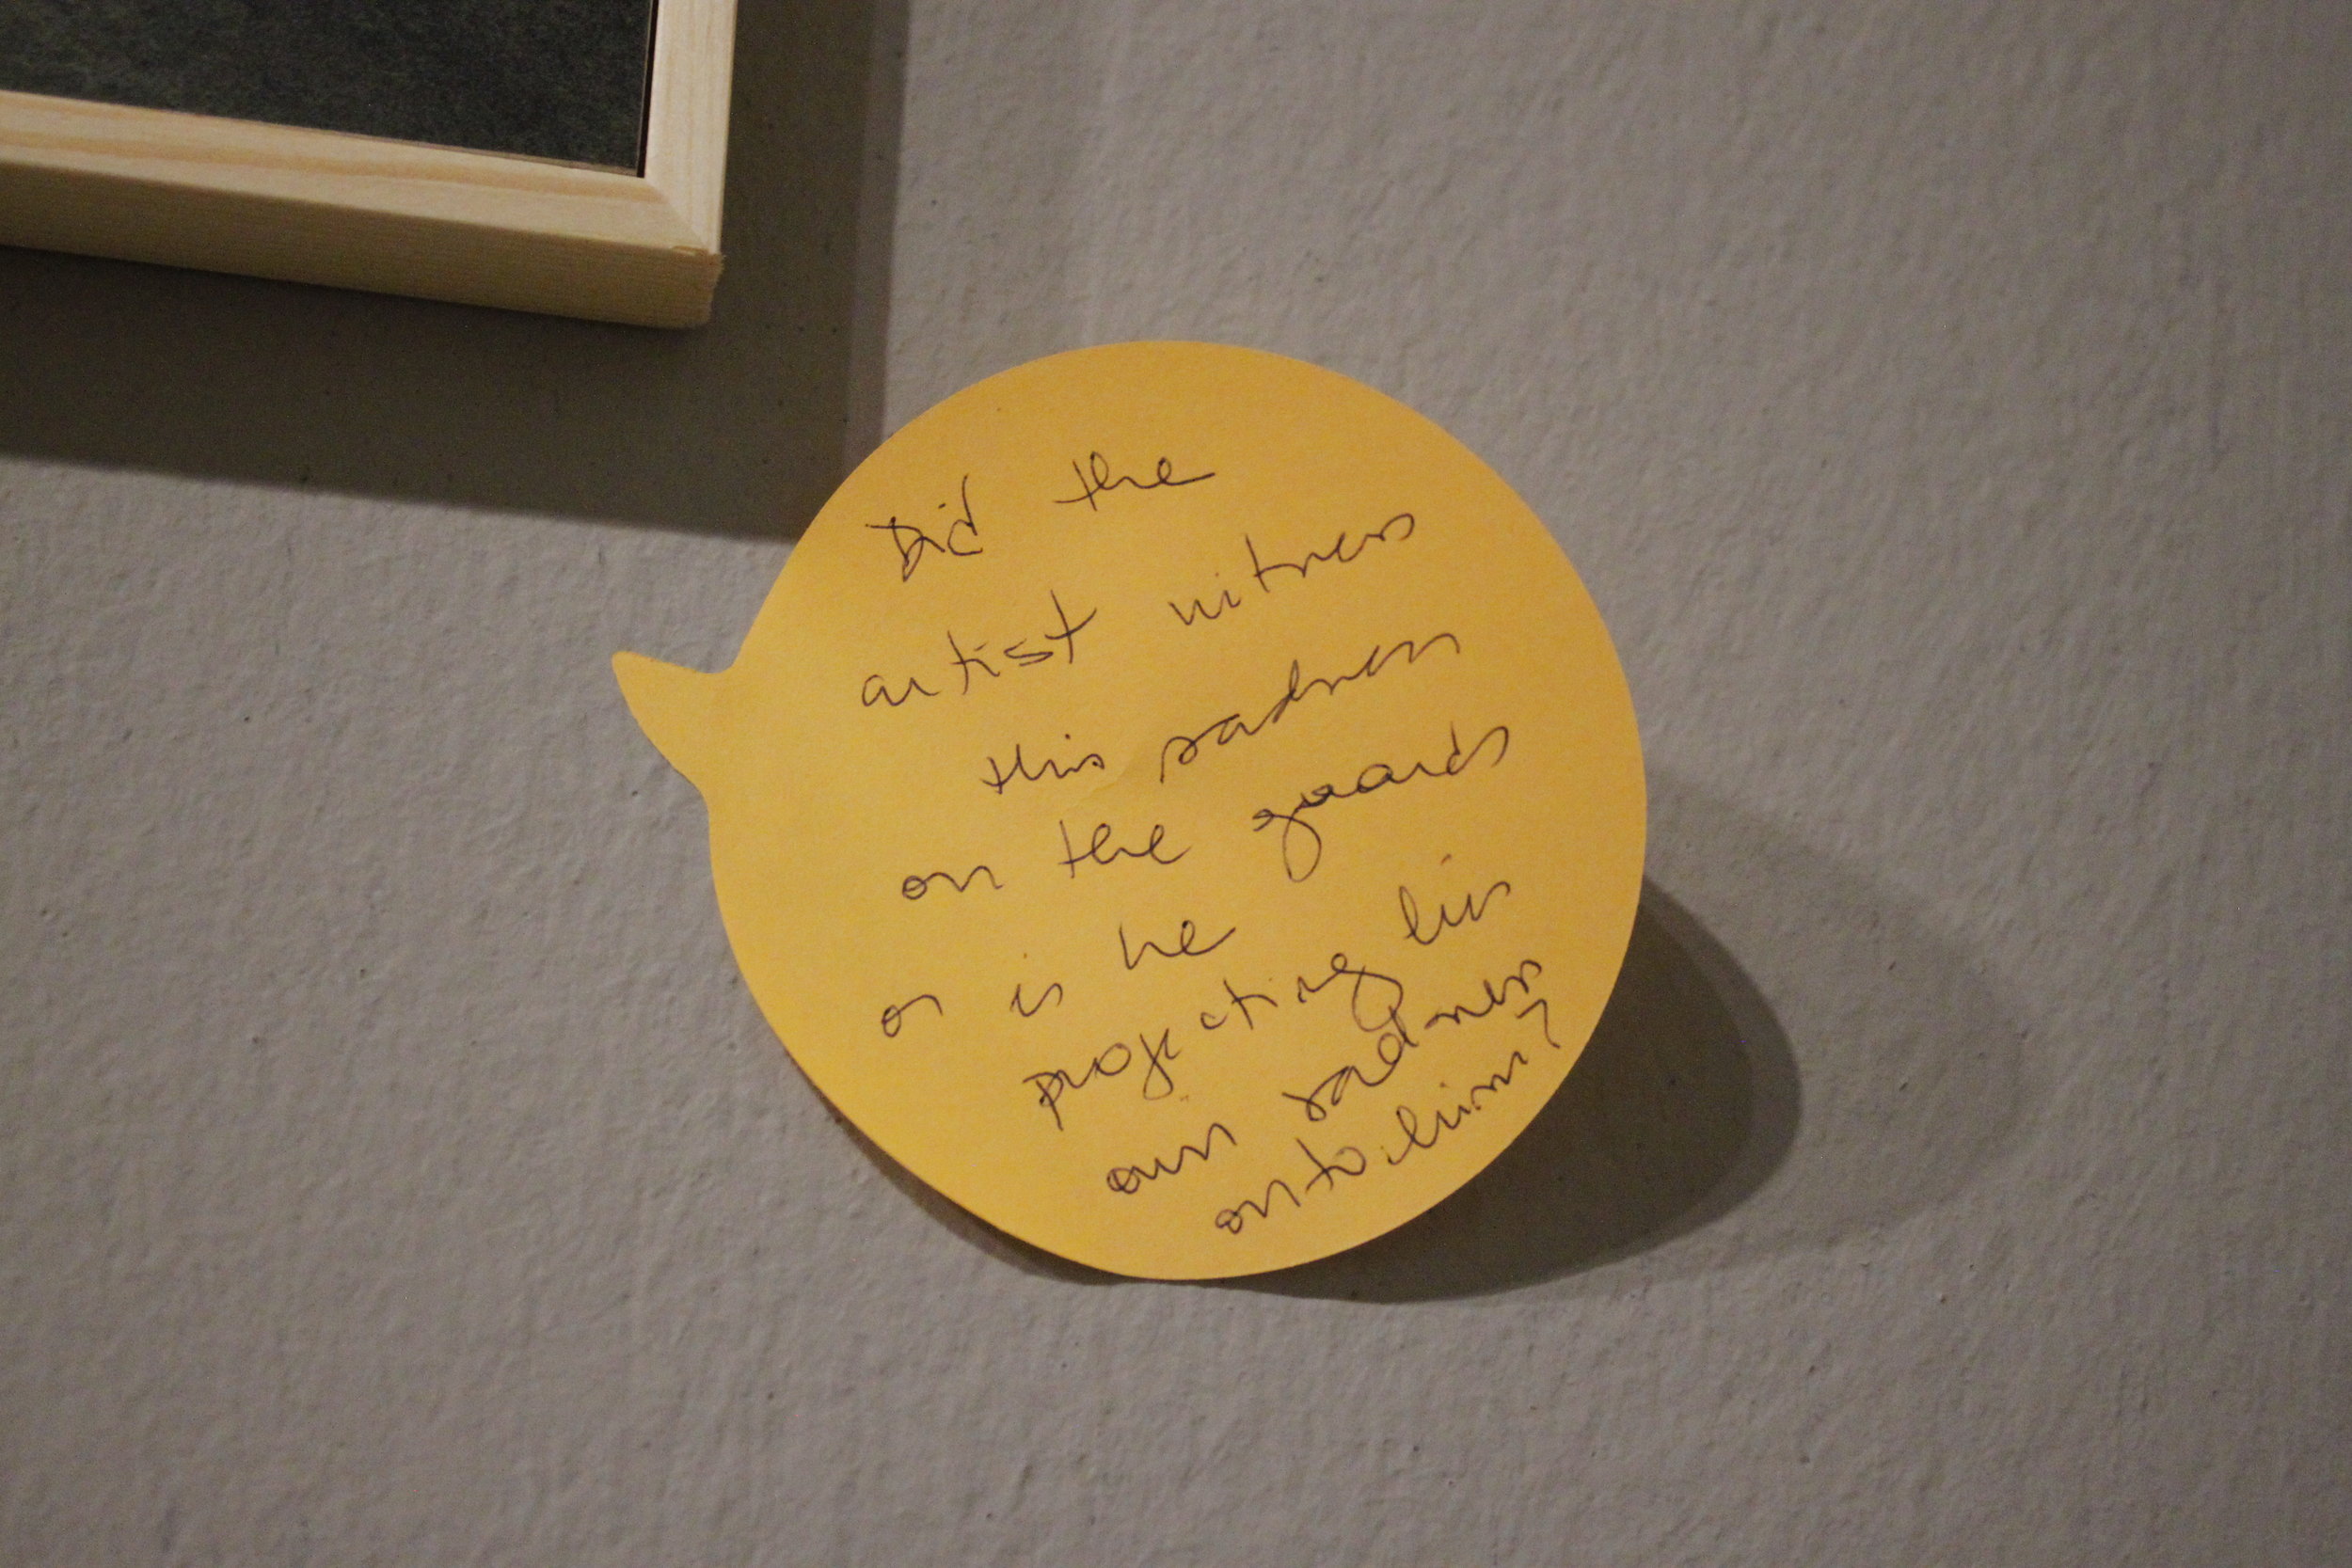 Did the
artist witness
this sadness
on the guards
or is he
projecting his
own sadness
onto him?